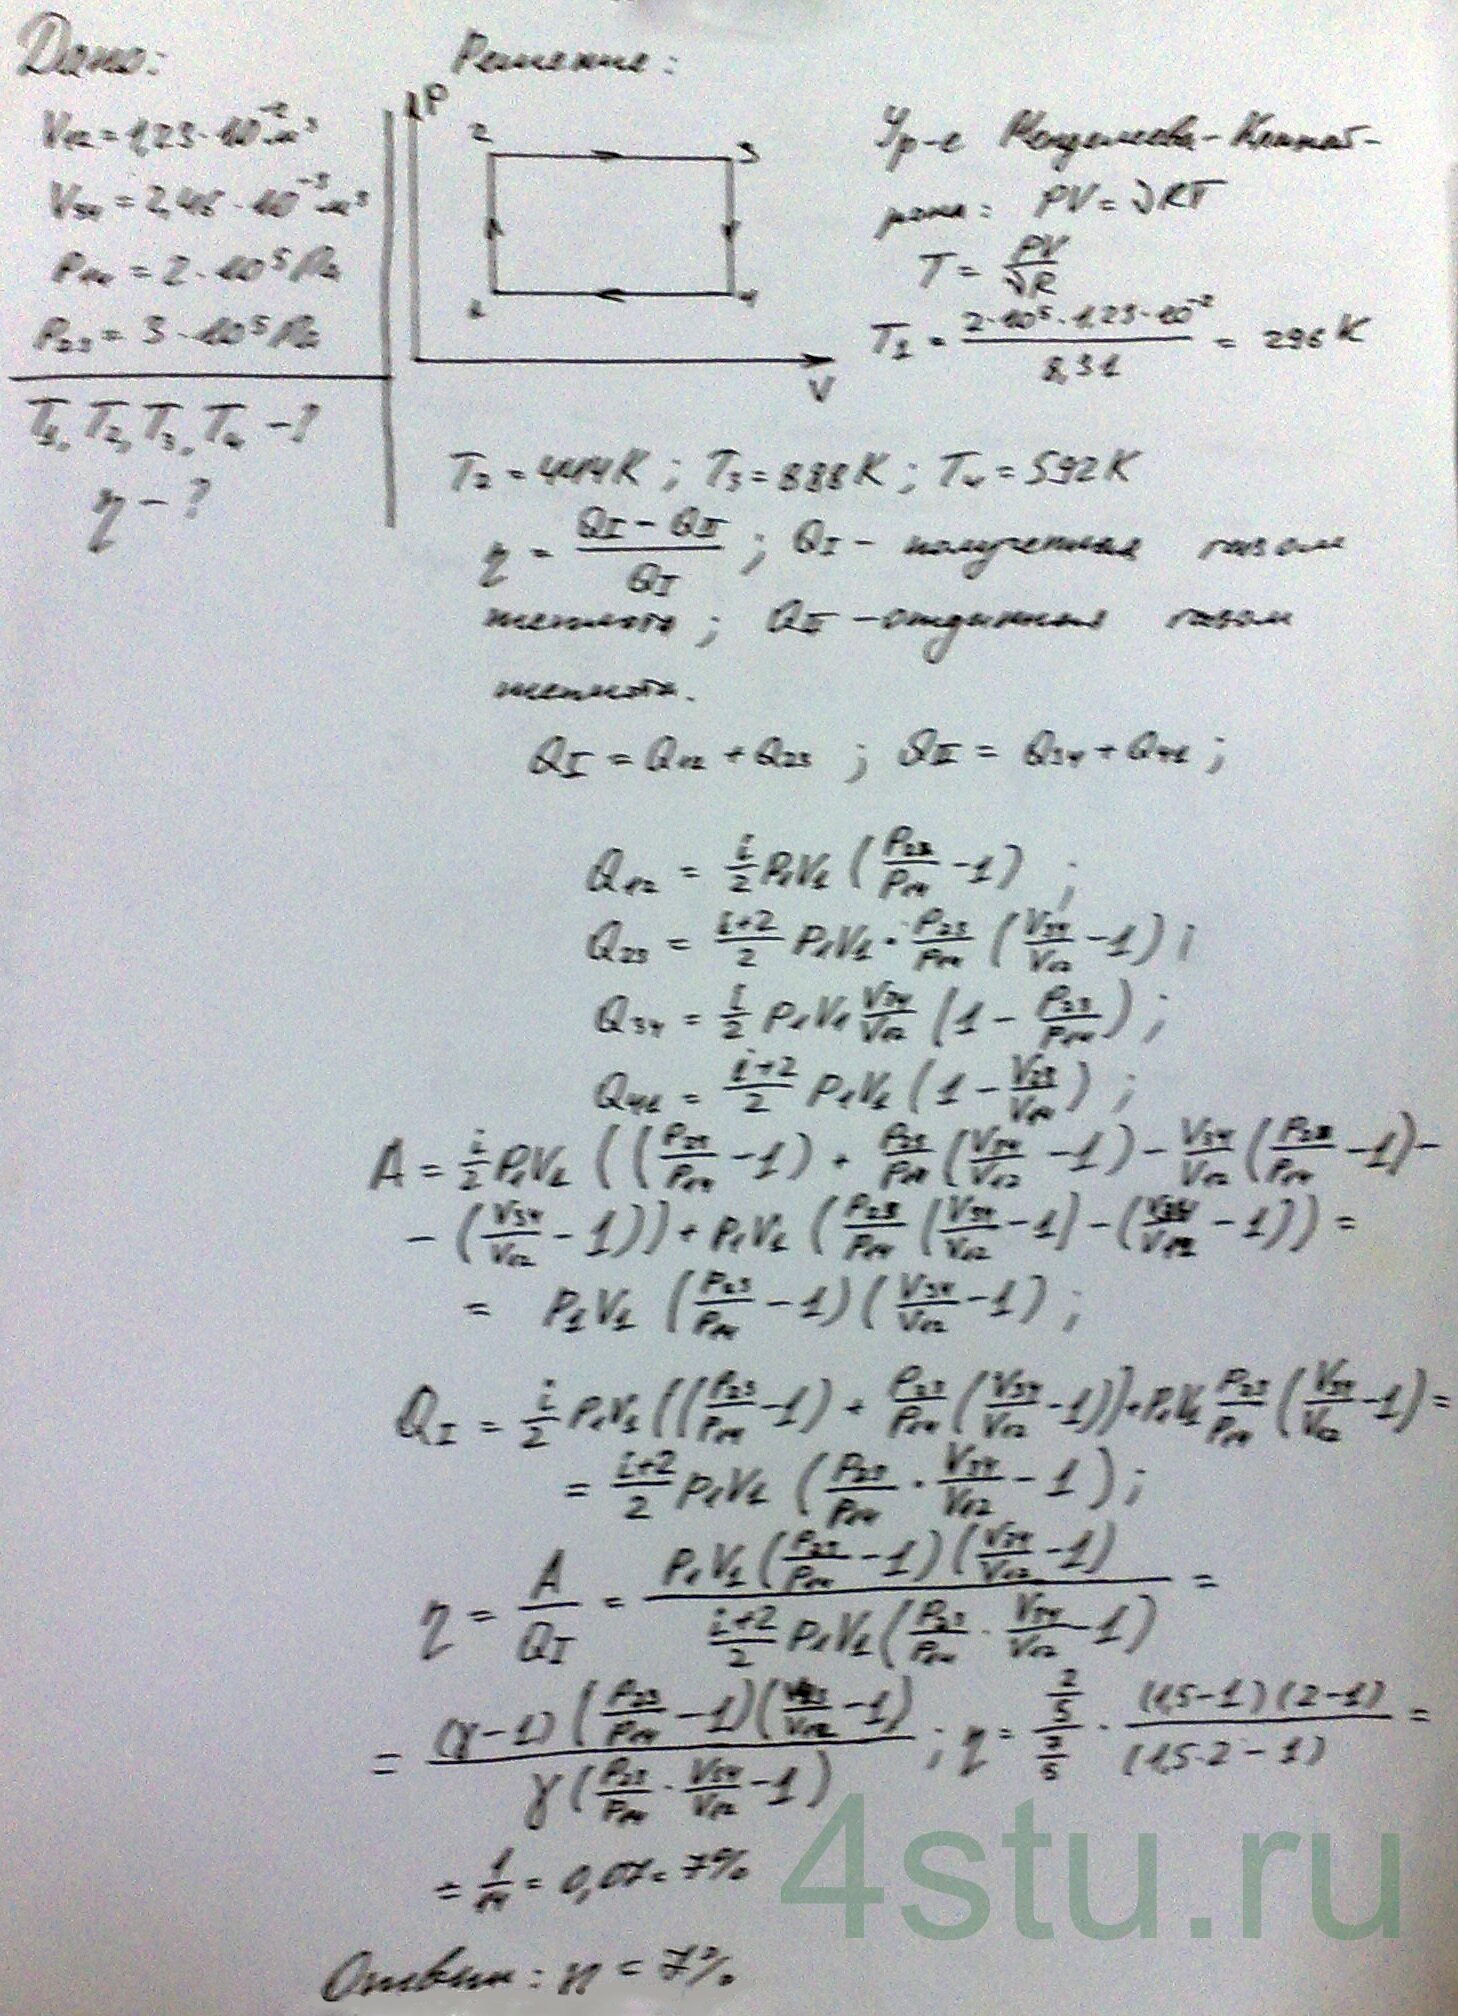 Дано:
V₁₂ = 1,23 · 10⁻² м³
V₃₄ = 2,46 · 10⁻² м³
P₁₄ = 2 · 10⁵ Па
P₂₃ = 3 · 10⁵ Па
T₁, T₂, T₃, T₄ – ?
η – ?
Решение:
P
2 3
1 4
V
Ур-е Менделеева-Клапей-
рона: PV = νRT
T = PV/νR
T₁ = 2·10⁵·1,23·10⁻²/8,31 = 296 K
T₂ = 444 K ; T₃ = 888 K ; T₄ = 592 K
η = (Q_I – Q_II)/Q_I ; Q_I – полученная газом
теплота ; Q_II – отданная газом
теплота.
Q_I = Q₁₂ + Q₂₃ ; Q_II = Q₃₄ + Q₄₁ ;
Q₁₂ = i/2 P₁V₁ (P₂₃/P₁₄ – 1) ;
Q₂₃ = (i+2)/2 P₁V₁ · P₂₃/P₁₄ (V₃₄/V₁₂ – 1) ;
Q₃₄ = i/2 P₁V₁ V₃₄/V₁₂ (1 – P₂₃/P₁₄) ;
Q₄₁ = (i+2)/2 P₁V₁ (1 – ) ;
A = i/2 P₁V₁ ((P₂₃/P₁₄ – 1) + P₂₃/P₁₄ (V₃₄/V₁₂ – 1) – V₃₄/V₁₂ (P₂₃/P₁₄ – 1) –
– (V₃₄/V₁₂ – 1)) + P₁V₁ (P₂₃/P₁₄ (V₃₄/V₁₂ – 1) – (V₃₄/V₁₂ – 1)) =
= P₁V₁ (P₂₃/P₁₄ – 1)(V₃₄/V₁₂ – 1) ;
Q_I = i/2 P₁V₁ ((P₂₃/P₁₄ – 1) + P₂₃/P₁₄ (V₃₄/V₁₂ – 1)) + P₁V₁ P₂₃/P₁₄ (V₃₄/V₁₂ – 1) =
= (i+2)/2 P₁V₁ (P₂₃/P₁₄ · V₃₄/V₁₂ – 1) ;
η = A/Q_I = P₁V₁ (P₂₃/P₁₄ – 1)(V₃₄/V₁₂ – 1) / (i+2)/2 P₁V₁ (P₂₃/P₁₄ · V₃₄/V₁₂ – 1) =
= (γ – 1)(P₂₃/P₁₄ – 1)( – 1) / γ (P₂₃/P₁₄ · V₃₄/V₁₂ – 1) ; η = (2/5)/(7/5) · (1,5 – 1)(2 – 1)/(1,5·2 – 1) =
= 1/14 = 0,07 = 7%
Ответ: η = 7%.
4stu.ru